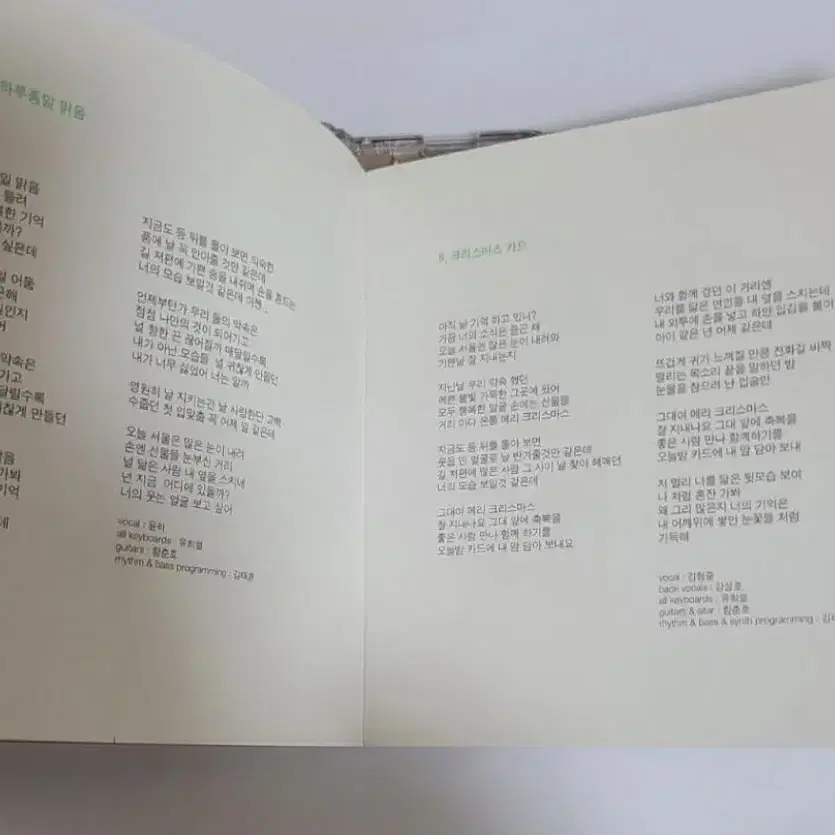 하루종일 맑음
일 맑음
들려
한 기억
까?
싶은데
일 어둠
해
인지
어
약속은
기고
달릴수록
찮게 만들던
맑음
가봐
기억
데
지금도 등 뒤를 돌아 보면 익숙한
품에 날 꼭 안아줄 것만 같은데
길 저편에 가쁜 숨을 내쉬며 손을 흔드는
너의 모습 보일것 같은데 이젠...
언제부턴가 우리 둘의 약속은
점점 나만의 것이 되어가고
널 향한 끈 끊어질까 매달릴수록
내가 아닌 모습들 널 귀찮게 만들던
내가 너무 싫었어 너는 알까
영원히 날 지키는간 날 사랑한단 고백
수줍던 첫 입맞춤 꼭 어제 일 같은데
오늘 서울은 많은 눈이 내려
손엔 선물들 눈부신 거리
널 닮은 사람 내 옆을 스치네
넌 지금 어디에 있을까?
너의 웃는 얼굴 보고 싶어
vocal : 윤하
all keyboards : 유희열
guitars : 함춘호
rhythm & bass programming : 김태훈
8. 크리스마스 카드
아직 날 기억 하고 있니?
가끔 너의 소식은 듣곤 해
오늘 서울엔 많은 눈이 내려와
기쁜날 잘 지내는지
지난날 우리 약속 했던
예쁜 불빛 가득한 그곳에 왔어
모두 행복한 얼굴 손에는 선물들
거리 마다 온통 메리 크리스마스
지금도 등 뒤를 돌아 보면
웃음 띤 얼굴로 날 반겨줄것만 같은데
길 저편에 많은 사람 그 사이 날 찾아 헤매던
너의 모습 보일것 같은데
그대여 메리 크리스마스
잘 지내나요 그대 앞에 축복을
좋은 사람 만나 함께 하기를
오늘밤 카드에 내 맘 담아 보내요
너와 함께 걷던 이 거리엔
우리를 닮은 연인들 내 옆을 스치는데
내 외투에 손을 넣고 하얀 입김을 불어
아이 같은 넌 어제 같은데
뜨겁게 귀가 느껴질 만큼 전화길 바짝
떨리는 목소리 끝을 말하던 밤
눈물을 참으려 난 입술만
그대여 메리 크리스마스
잘 지내나요 그대 앞에 축복을
좋은 사람 만나 함께하기를
오늘밤 카드에 내 맘 담아 보내
저 멀리 너를 닮은 뒷모습 보여
나 처럼 혼잔 가봐
왜 그리 많은지 너의 기억은
내 어깨위에 쌓인 눈꽃들 처럼
가득해
vocal : 김형중
back vocals : 강성호
all keyboards : 유희열
guitars & sitar : 함춘호
rhythm & bass & synth programming :